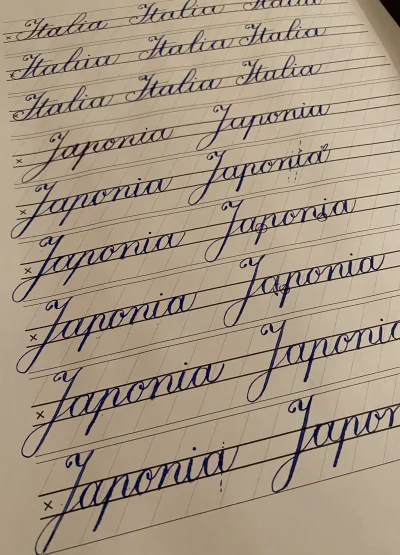 Italia Italia Italia
Italia Italia Italia
Italia Italia Italia
Japonia Japonia
Japonia Japonia
Japonia Japonia
Japonia Japonia
Japonia Japonia
Japonia Japon